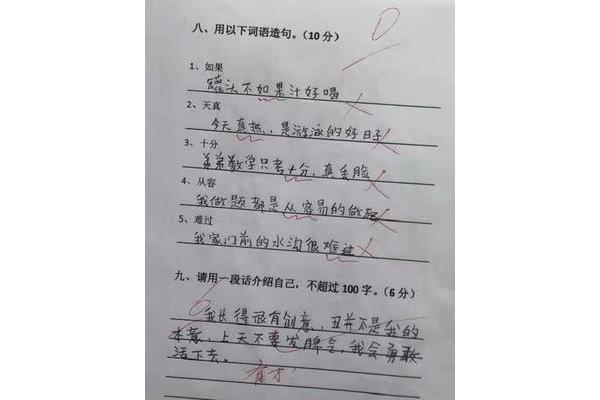 八、用以下词语造句。（10 分）
0
1、如果
罐头不如果汁好喝
2、天真
今天真热，是游泳的好日子
3、十分
弟弟数学只考十分，真丢脸
4、从容
我做题都是从容易的做起
5、难过
我家门前的水沟很难过
九、请用一段话介绍自己，不超过 100 字。（6 分）
6
我长得很有创意，丑并不是我的
本意，上天不要发脾气，我会勇敢
活下去。
有才！